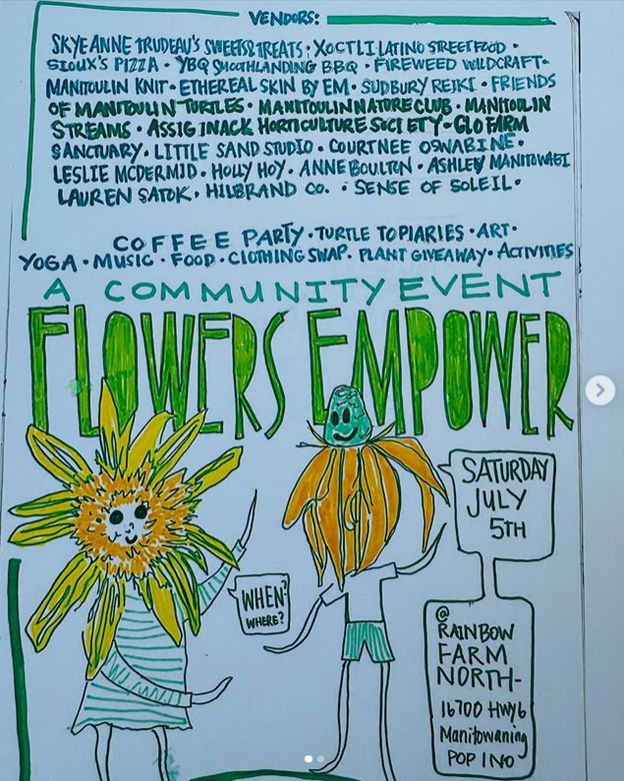 VENDORS:
SKYEANNE TRUDEAU'S SWEETS & TREATS · XOCTLI LATINO STREETFOOD ·
SIOUX'S PIZZA · YBQ SMOOTHLANDING BBQ · FIREWEED WILDCRAFT ·
MANITOULIN KNIT · ETHEREAL SKIN BY EM · SUDBURY REIKI · FRIENDS
OF MANITOULIN TURTLES · MANITOULIN NATURE CLUB · MANITOULIN
STREAMS · ASSIGINACK HORTICULTURE SOCIETY · GLO FARM
SANCTUARY · LITTLE SAND STUDIO · COURTNEE OSWABINE ·
LESLIE MCDERMID · HOLLY HOY · ANNE BOULTON · ASHLEY MANITOWABI
LAUREN SATOK · HILBRAND CO. · SENSE OF SOLEIL ·
COFFEE PARTY · TURTLE TOPIARIES · ART ·
YOGA · MUSIC · FOOD · CLOTHING SWAP · PLANT GIVEAWAY · ACTIVITIES
A COMMUNITY EVENT
FLOWERS EMPOWER
SATURDAY
JULY
5TH
WHEN?
WHERE?
@
RAINBOW
FARM
NORTH-
16700 HWY6
Manitowaning
POP 1NO